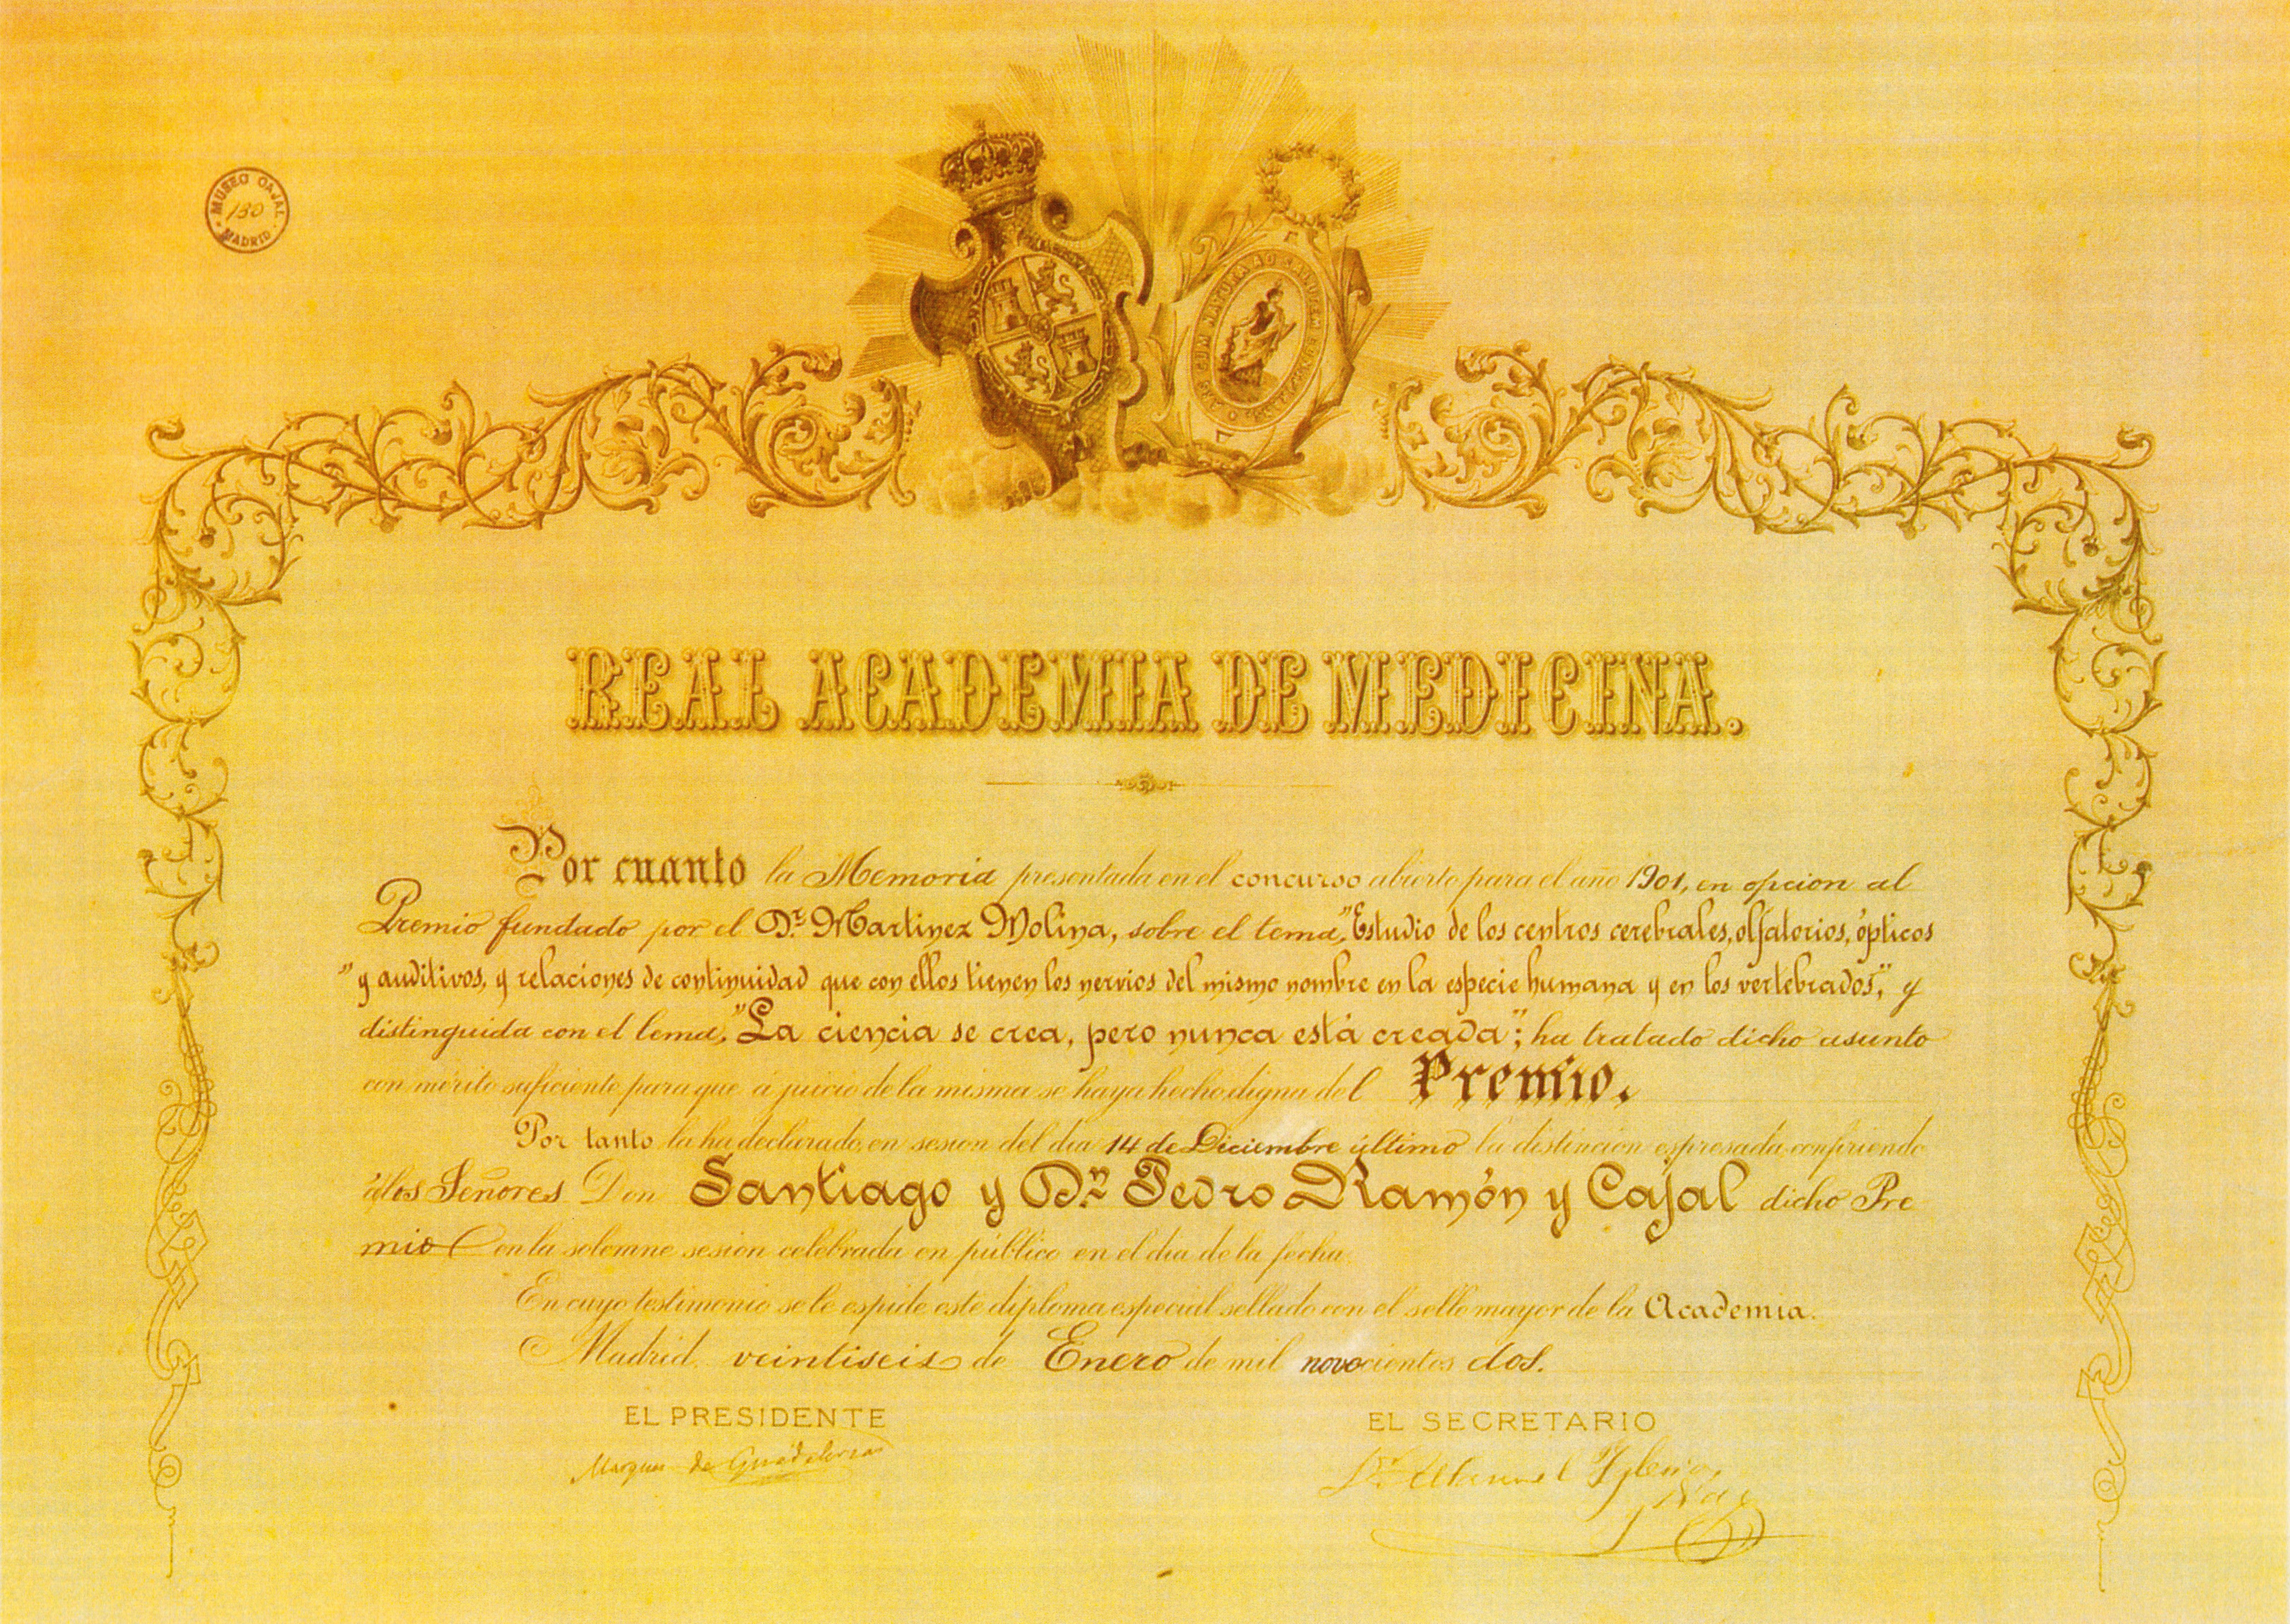 MUSEO CAJAL
130
MADRID
ARS CUM NATURA AD SALUTEM CONSPIRANS
REAL ACADEMIA DE MEDICINA.
Por cuanto la Memoria presentada en el concurso abierto para el año 1901, en opcion al
Premio fundado por el Dr. Martinez Molina, sobre el tema, "Estudio de los centros cerebrales, olfatorios, ópticos
" y auditivos, y relaciones de continuidad que con ellos tienen los nervios del mismo nombre en la especie humana y en los vertebrados", y
distinguida con el lema, "La ciencia se crea, pero nunca está creada"; ha tratado dicho asunto
con mérito suficiente para que a juicio de la misma se haya hecho digna del Premio.
Por tanto la ha declarado, en sesion del dia 14 de Diciembre último la distincion espresada, confiriendo
á los Señores Don Santiago y Dn. Pedro Ramón y Cajal dicho Pre
mio en la solemne sesion celebrada en público en el dia de la fecha.
En cuyo testimonio se le espide este diploma especial sellado con el sello mayor de la Academia.
Madrid veintiseis de Enero de mil novecientos dos.
EL PRESIDENTE
EL SECRETARIO
Marques de Guadalerzas
Dr. Manuel Iglesias
y Díaz